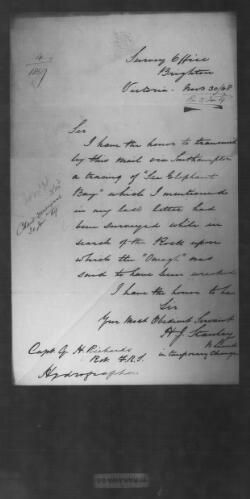 4
1869
Survey Office
Brighton
Victoria. Nov 30/68
Sir
I have the honor to transmit
by this Mail via Southampton
a tracing of "Sea Elephant
Bay" which I mentioned
in my last letter had
been surveyed while in
search of the Rock upon
which the "Omagh" was
said to have been wrecked
I have the honor to be
Sir
Your Most Obedient Servant
H J Stanley
in temporary charge
Capt G H Richards
R.N. F.R.S.
Hydrographer